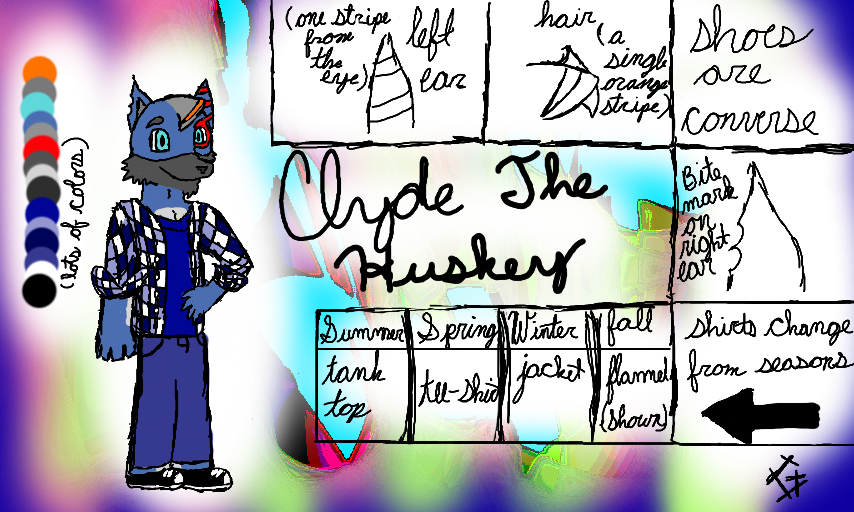 (one stripe
from
the
eye)
left
ear
hair
(a
single
orange
stripe)
shoes
are
converse
(lots of colors)
Clyde The
Huskey
Bite
mark
on
right
ear
Summer
Spring
Winter
fall
tank
top
tee-shirt
jacket
flannel
(shown)
shirts change
from seasons